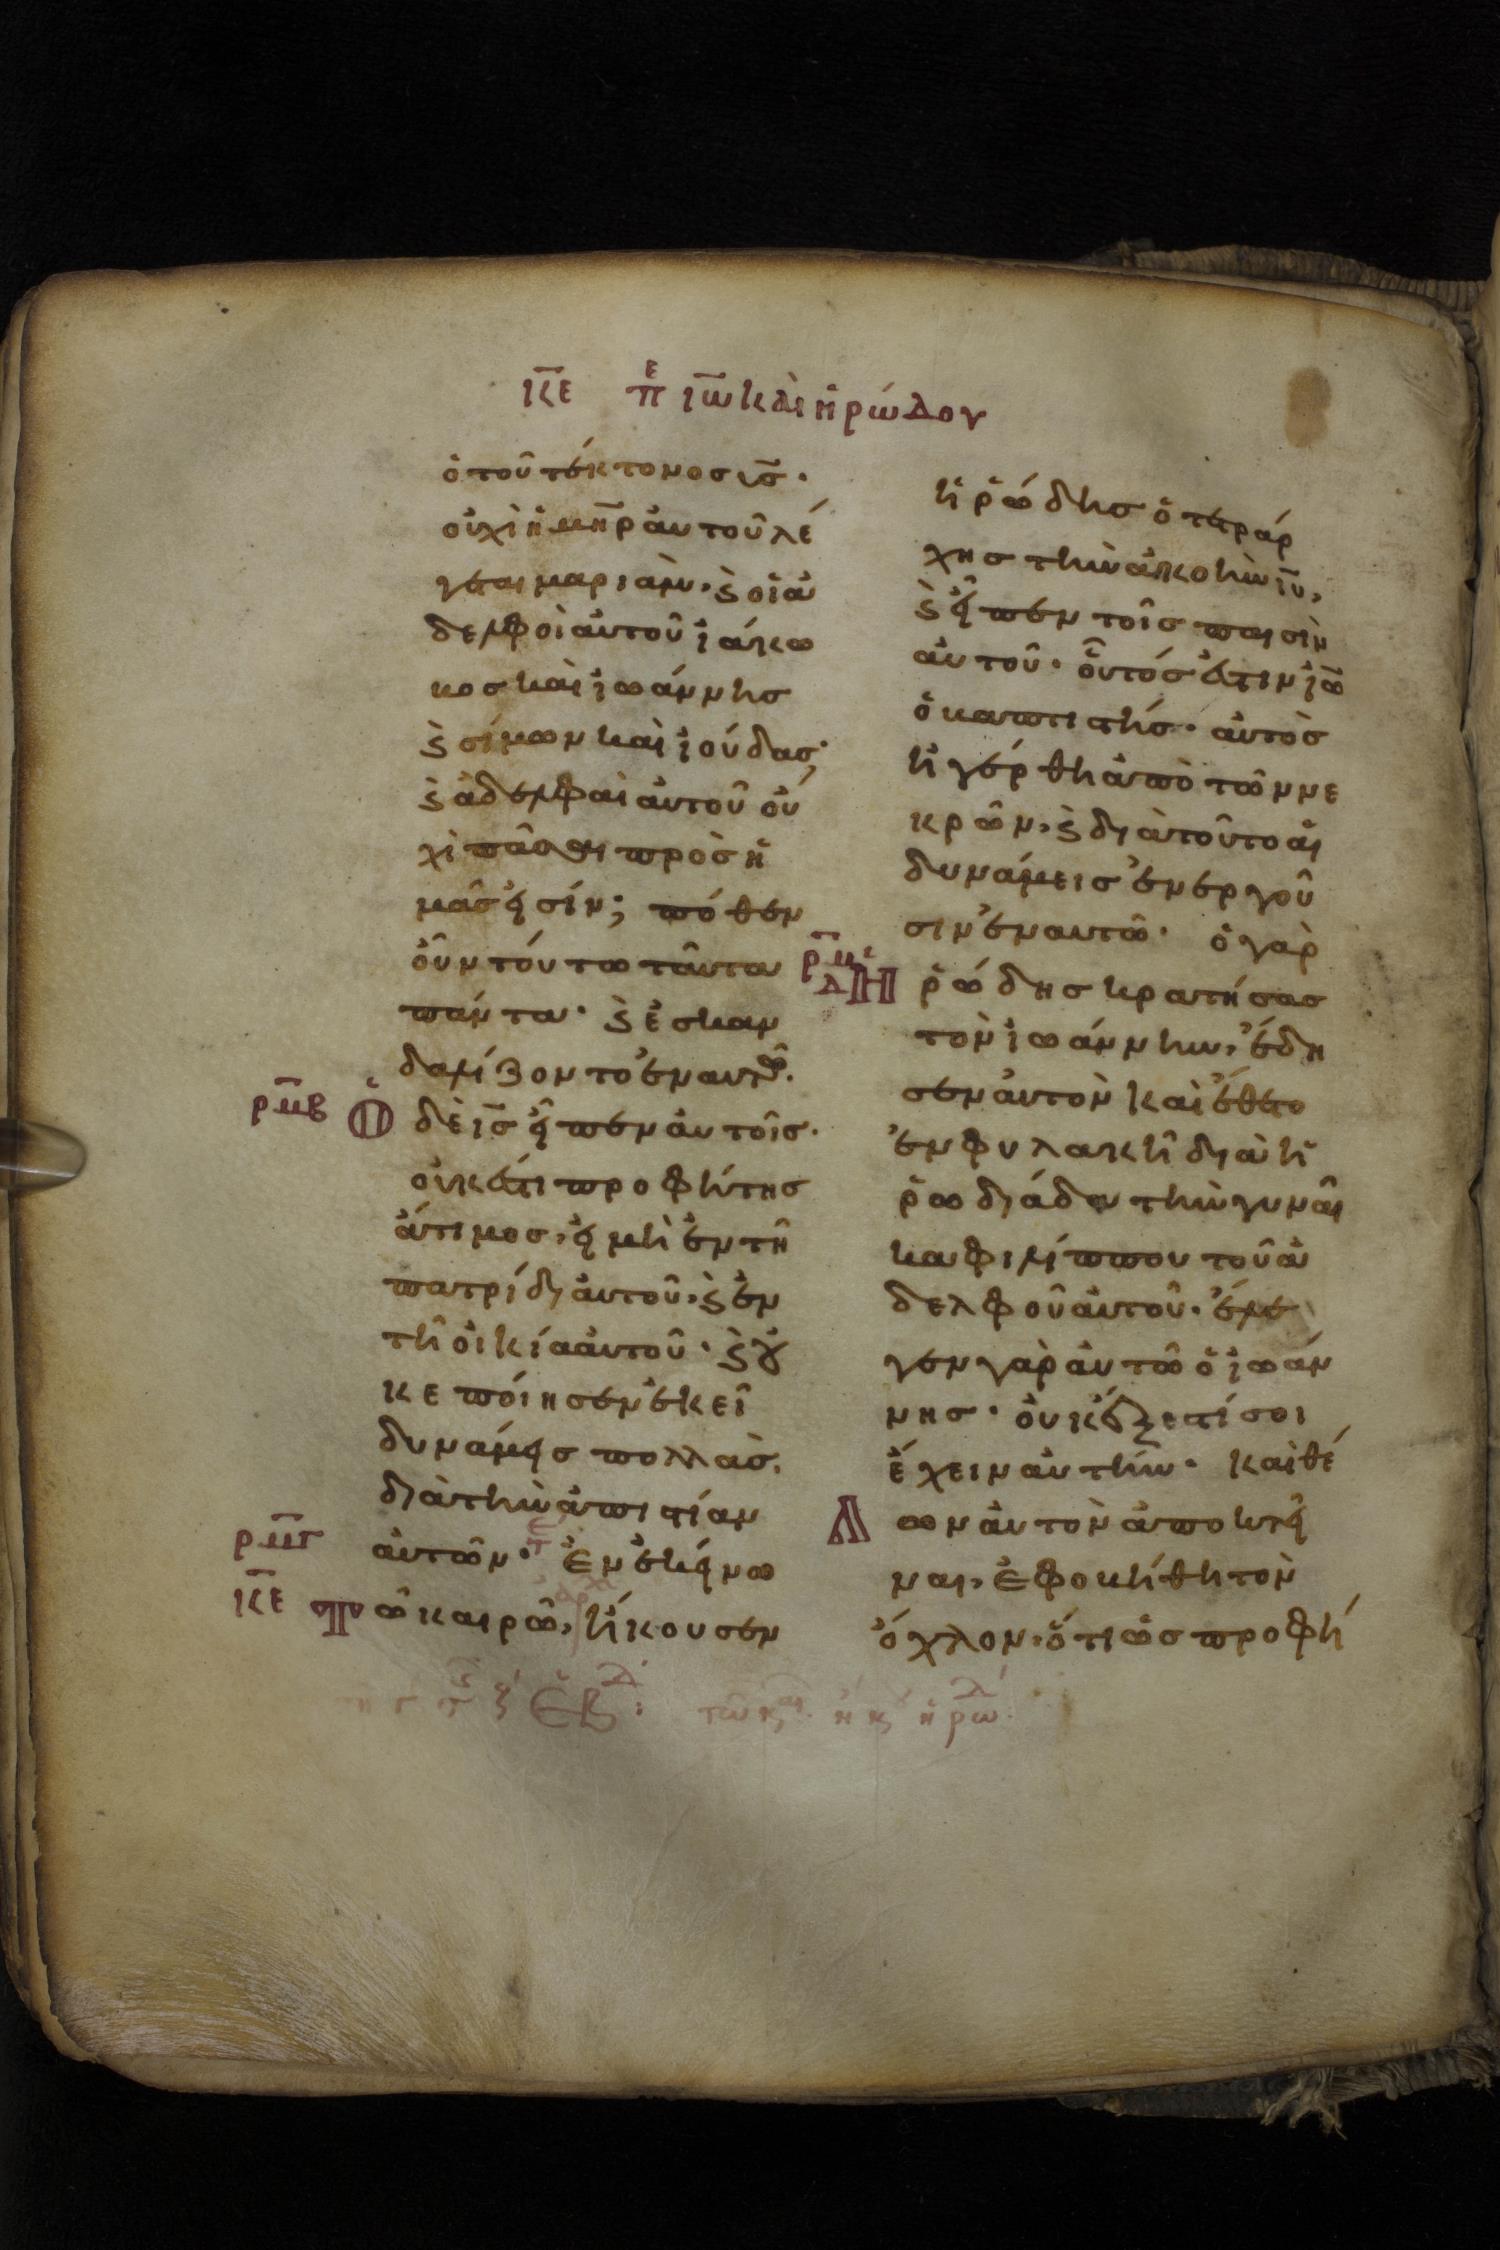 κε περι ιω και ηρώδου
ὁ τοῦ τέκτονοσ υσ·
οὐχὶ ἡ μηρ αὐτοῦ λέ
γεται μαριὰμ, ϗ οἱ ἀ
δελφοὶ αὐτοῦ ἰάκω
βοσ καὶ ἰωάννησ
ϗ σίμων καὶ ἰούδασ;
ϗ ἀδελφαὶ αὐτοῦ οὐ
χὶ πᾶσαι προσ ἡ
μᾶσ εἰσίν; πόθεν
οὖν τούτω ταῦτα
πάντα· ϗ ἐσκαν
δαλίζοντο ἐν αυτῶ.
ρμβ Ὁ δὲ ισ εἶπεν αὐτοῖσ·
οὐκ ἔστι προφήτησ
ἄτιμοσ, εἰ μὴ ἐν τῆ
πατρίδι αὐτοῦ, ϗ ἐν
τῆ οἰκία αὐτοῦ· ϗ οὐ
κ ἐποίησεν ἐκεῖ
δυνάμεισ πολλάσ.
διὰ τὴν ἀπιστίαν
ρμγ αὐτῶν· ἐν ἐκείνω
κε Τῶ καιρῶ, ἤκουσεν
ἡρώδησ ὁ τετράρ
χησ τὴν ἀκοὴν ιυ,
ϗ εἶπεν τοῖσ παισὶν
αὐτοῦ· οὗτόσ ἐστιν ἰω
ὁ βαπτιστήσ· αὐτὸσ
ἠγέρθη ἀπὸ τῶν νε
κρῶν, ϗ διὰ τοῦτο αἱ
δυνάμεισ ἐνεργοῦ
σιν ἐν αυτῶ· ὁ γὰρ
ρμδ Ἡρώδησ κρατήσασ
τὸν ἰωάννην, ἔδη
σεν αὐτὸν καὶ ἔθετο
ἐν φυλακῆ διὰ ἡ
ρωδιάδα τὴν γυναῖ
κα φιλίππου τοῦ ἀ
δελφοῦ αὐτοῦ· ἔλε
γεν γὰρ αὐτῶ ὁ ἰωάν
νησ· οὐκ ἔξεστί σοι
ἔχειν αὐτήν· καὶ θέ
Λων αὐτὸν ἀποκτεῖ
ναι, ἐφοβήθη τὸν
ὄχλον, ὅτι ὡσ προφή